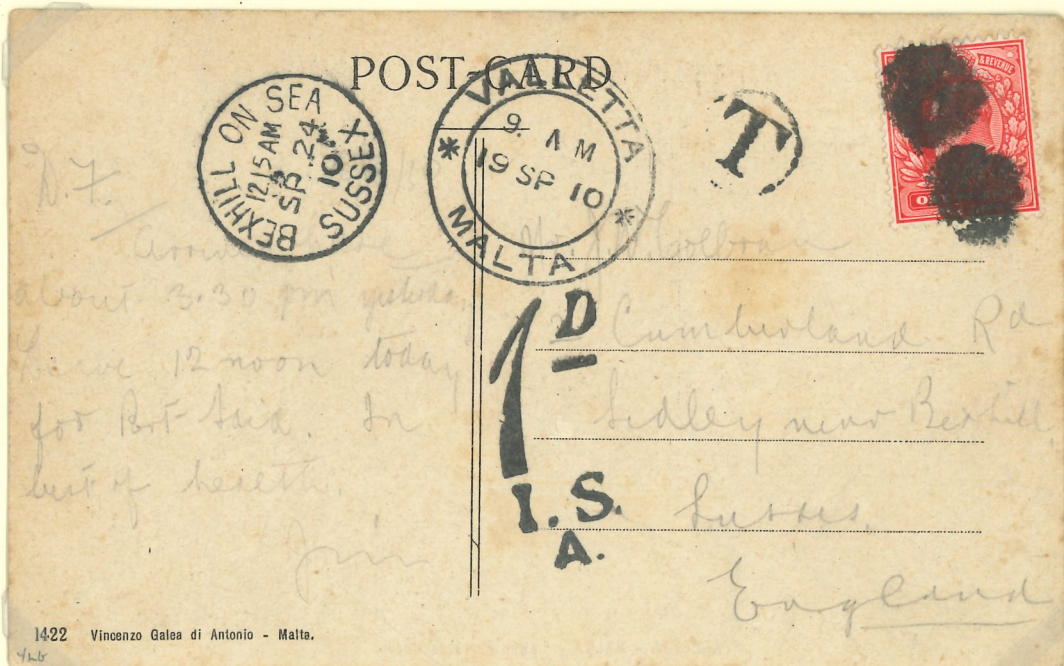 POST-CARD
BEXHILL ON SEA
12.15 AM
SP 24
10
SUSSEX
VALLETTA
9 AM
19 SP 10
MALTA
T
& REVENUE
D. F.
Arrived here
about 3.30 pm yesterday
Leave 12 noon today
for Port Said. In
best of health.
Jim
Mr
Cumberland Rd
Sidley near Bexhill
Sussex
England
1D
I.S.
A.
1422 Vincenzo Galea di Antonio - Malta.